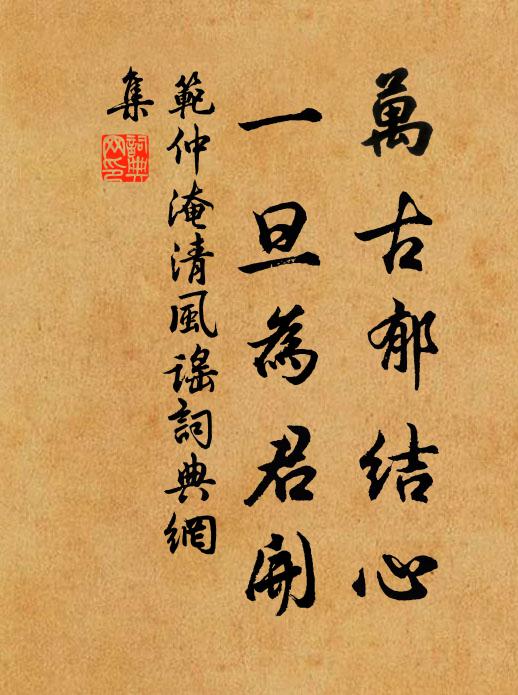 萬古郁结心
一旦為君開
範仲淹清風謠詞典網
集
詞典网印